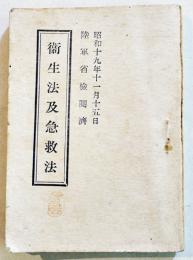 昭和十九年十一月十五日
陸軍省檢閲濟
衞生法及急救法